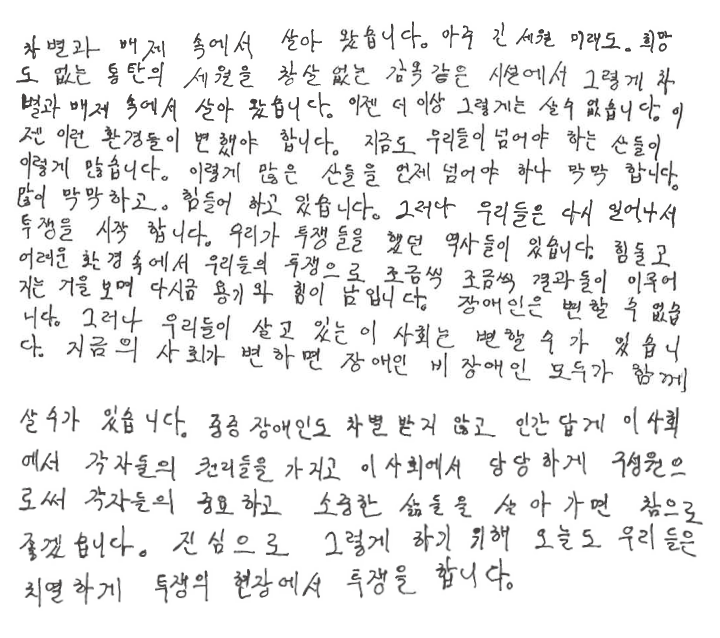 차별과 배제 속에서 살아 왔습니다. 아주 긴 세월 미래도. 희망
도 없는 통탄의 세월을 창살 없는 감옥 같은 시설에서 그렇게 차
별과 배제 속에서 살아 왔습니다. 이젠 더 이상 그렇게는 살수 없습니다. 이
젠 이런 환경들이 변했야 합니다. 지금도 우리들이 넘어야 하는 산들이
이렇게 많습니다. 이렇게 많은 산들을 언제 넘어야 하나 막막 합니다.
많이 막막하고. 힘들어 하고 있습니다. 그러나 우리들은 다시 일어나서
투쟁을 시작 합니다. 우리가 투쟁들을 했던 역사들이 있습니다. 힘들고
어려운 환경속에서 우리들의 투쟁으로 조금씩 조금씩 결과들이 이루어
지는 거을 보며 다시금 용기와 힘이 남입니다. 장애인은 변할 수 없습
니다. 그러나 우리들이 살고 있는 이 사회는 변할 수가 있습니
다. 지금의 사회가 변하면 장애인 비장애인 모두가 함께
살수가 있습니다. 중증 장애인도 차별 받지 않고 인간 답게 이 사회
에서 각자들의 권리들을 가지고 이 사회에서 당당하게 구성원으
로써 각자들의 중요하고 소중한 삶들을 살아 가면 참으로
좋겠습니다. 진심으로 그렇게 하기 위해 오늘도 우리들은
치열하게 투쟁의 현장에서 투쟁을 합니다.